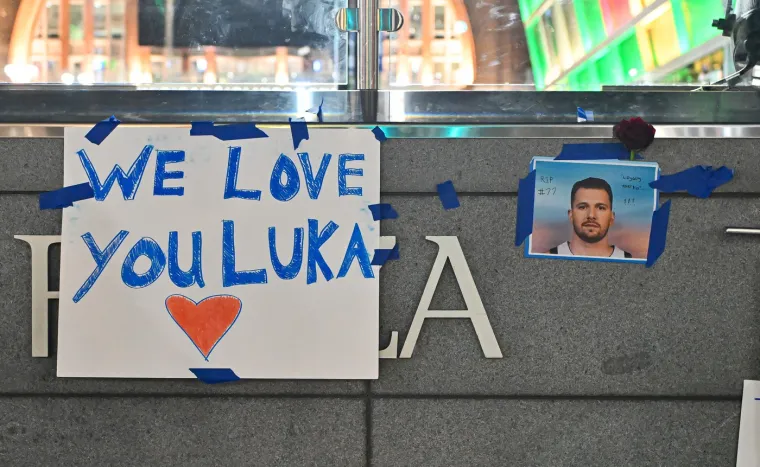 WE LOVE
YOU LUKA
A
RIP
#77